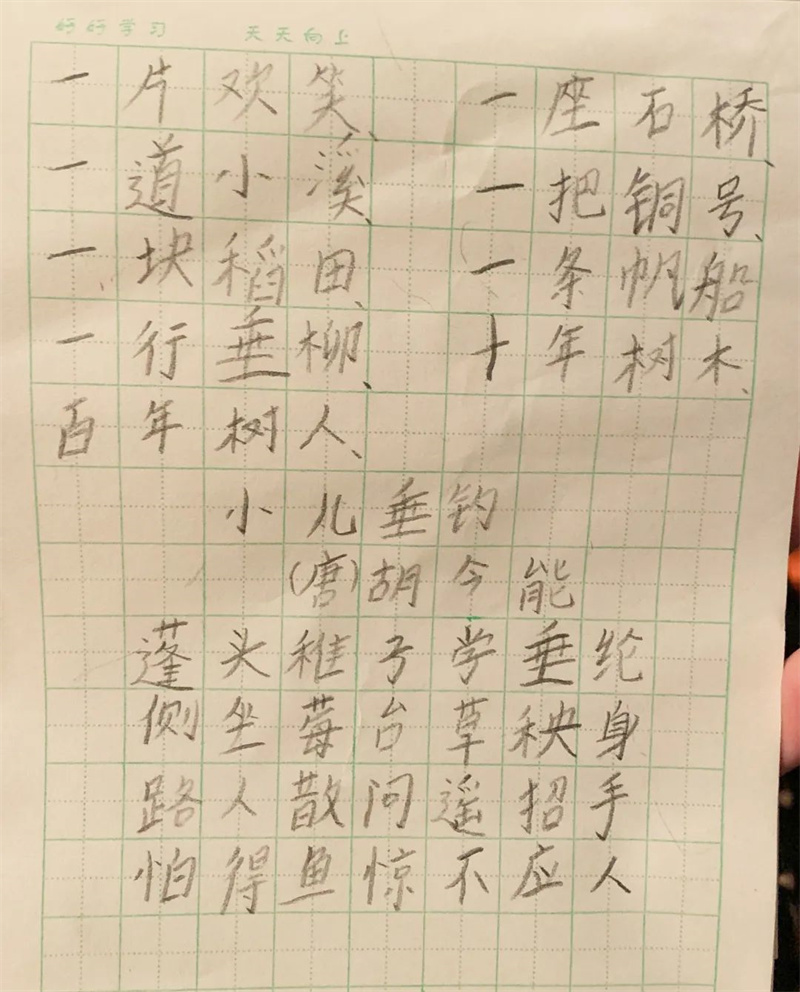 好好学习 天天向上
一片欢笑、一座石桥、
一道小溪、一把铜号、
一块稻田、一条帆船
一行垂柳、十年树木、
百年树人、
小儿垂钓
(唐)胡今能
蓬头稚子学垂纶
侧坐莓台草秧身
路人散问遥招手
怕得鱼惊不应人